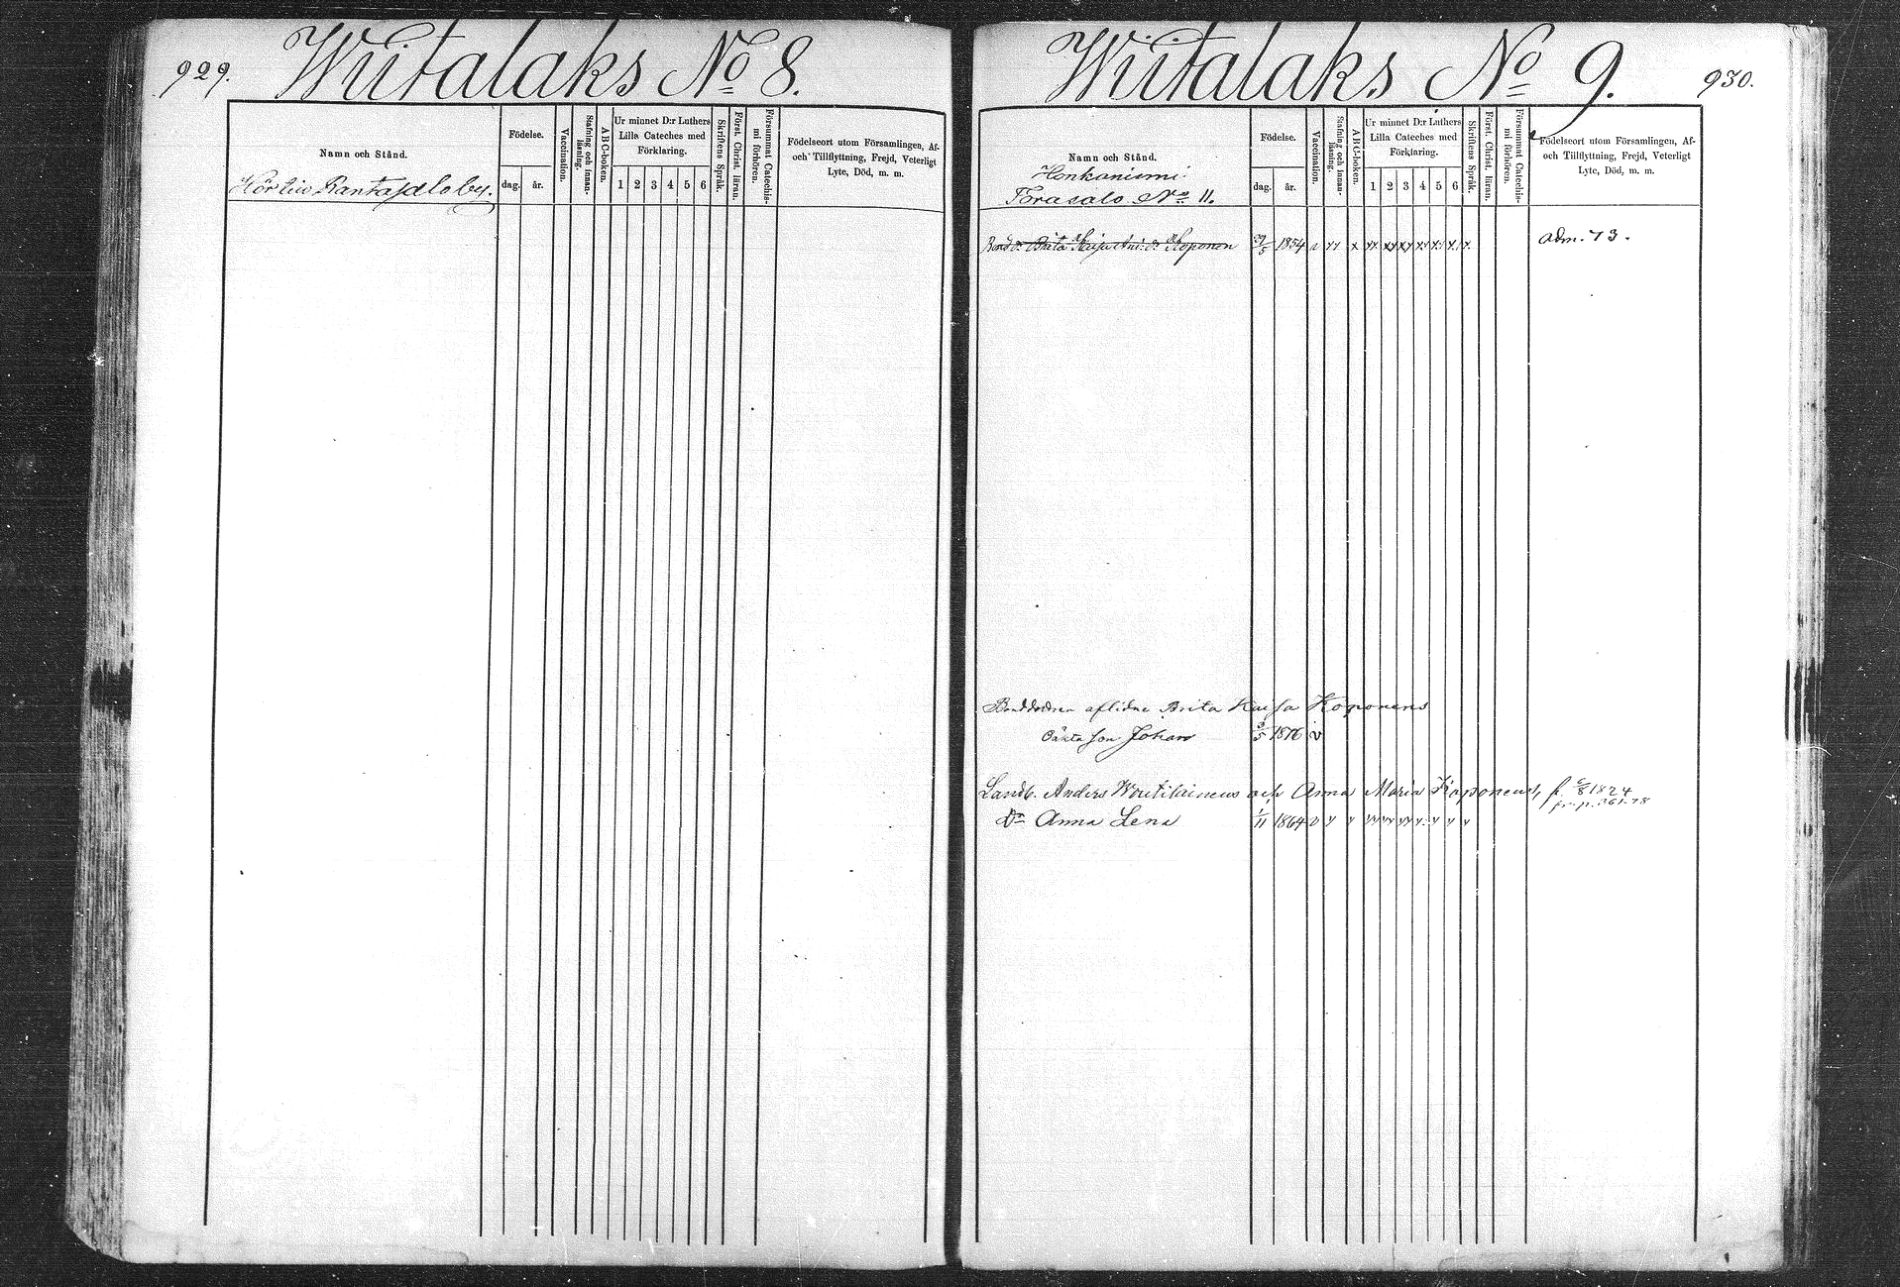 929. Wiitalaks No 8.
Namn och Stånd.
Födelse.
dag. år.
Vaccination.
Stafning och innan-
läsning.
A B C-boken.
Ur minnet D:r Luthers
Lilla Cateches med
Förklaring.
1 2 3 4 5 6
Skriftens Språk.
Först. Christ. läran.
Försummat Catechis-
mi förhören.
Födelseort utom Församlingen, Af-
och Tillflyttning, Frejd, Veterligt
Lyte, Död, m. m.
Wiitalaks No 9. 930.
Namn och Stånd.
Honkaniemi
Torasalo No 11.
Födelse.
dag. år.
Vaccination.
Stafning och innan-
läsning.
A B C-boken.
Ur minnet D:r Luthers
Lilla Cateches med
Förklaring.
1 2 3 4 5 6
Skriftens Språk.
Först. Christ. läran.
Försummat Catechis-
mi förhören.
Födelseort utom Församlingen, Af-
och Tillflyttning, Frejd, Veterligt
Lyte, Död, m. m.
Brita Kaisa Koponen 1854 adm. 73.
aflidne Brita Kaisa Koponens
oäkta son Johan 1876 v
Landb. Anders Woutilainens och Anna Maria Koponens, f. 6/8 1824
Dr Anna Lena 1/11 1864 v